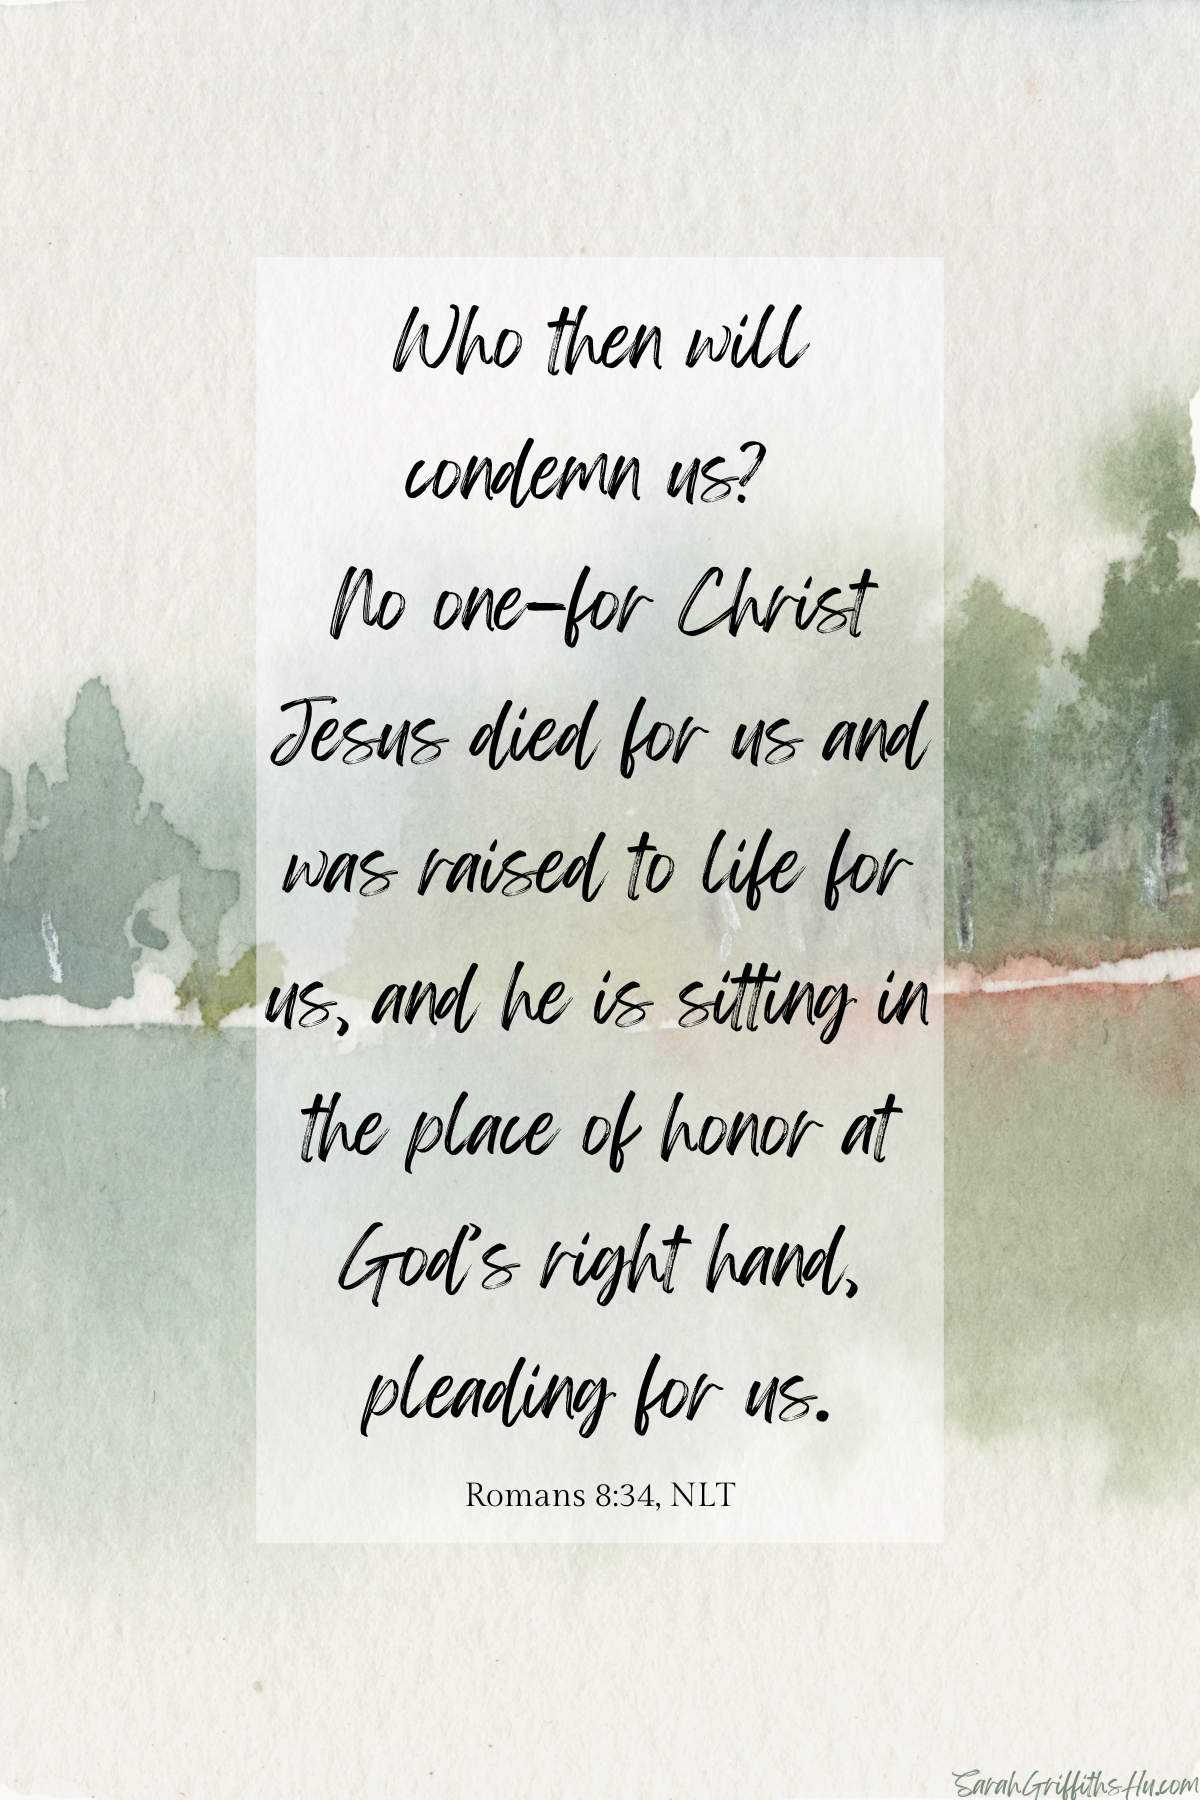 Who then will
condemn us?
No one–for Christ
Jesus died for us and
was raised to life for
us, and he is sitting in
the place of honor at
God's right hand,
pleading for us.
Romans 8:34, NLT
SarahGriffithsHu.com